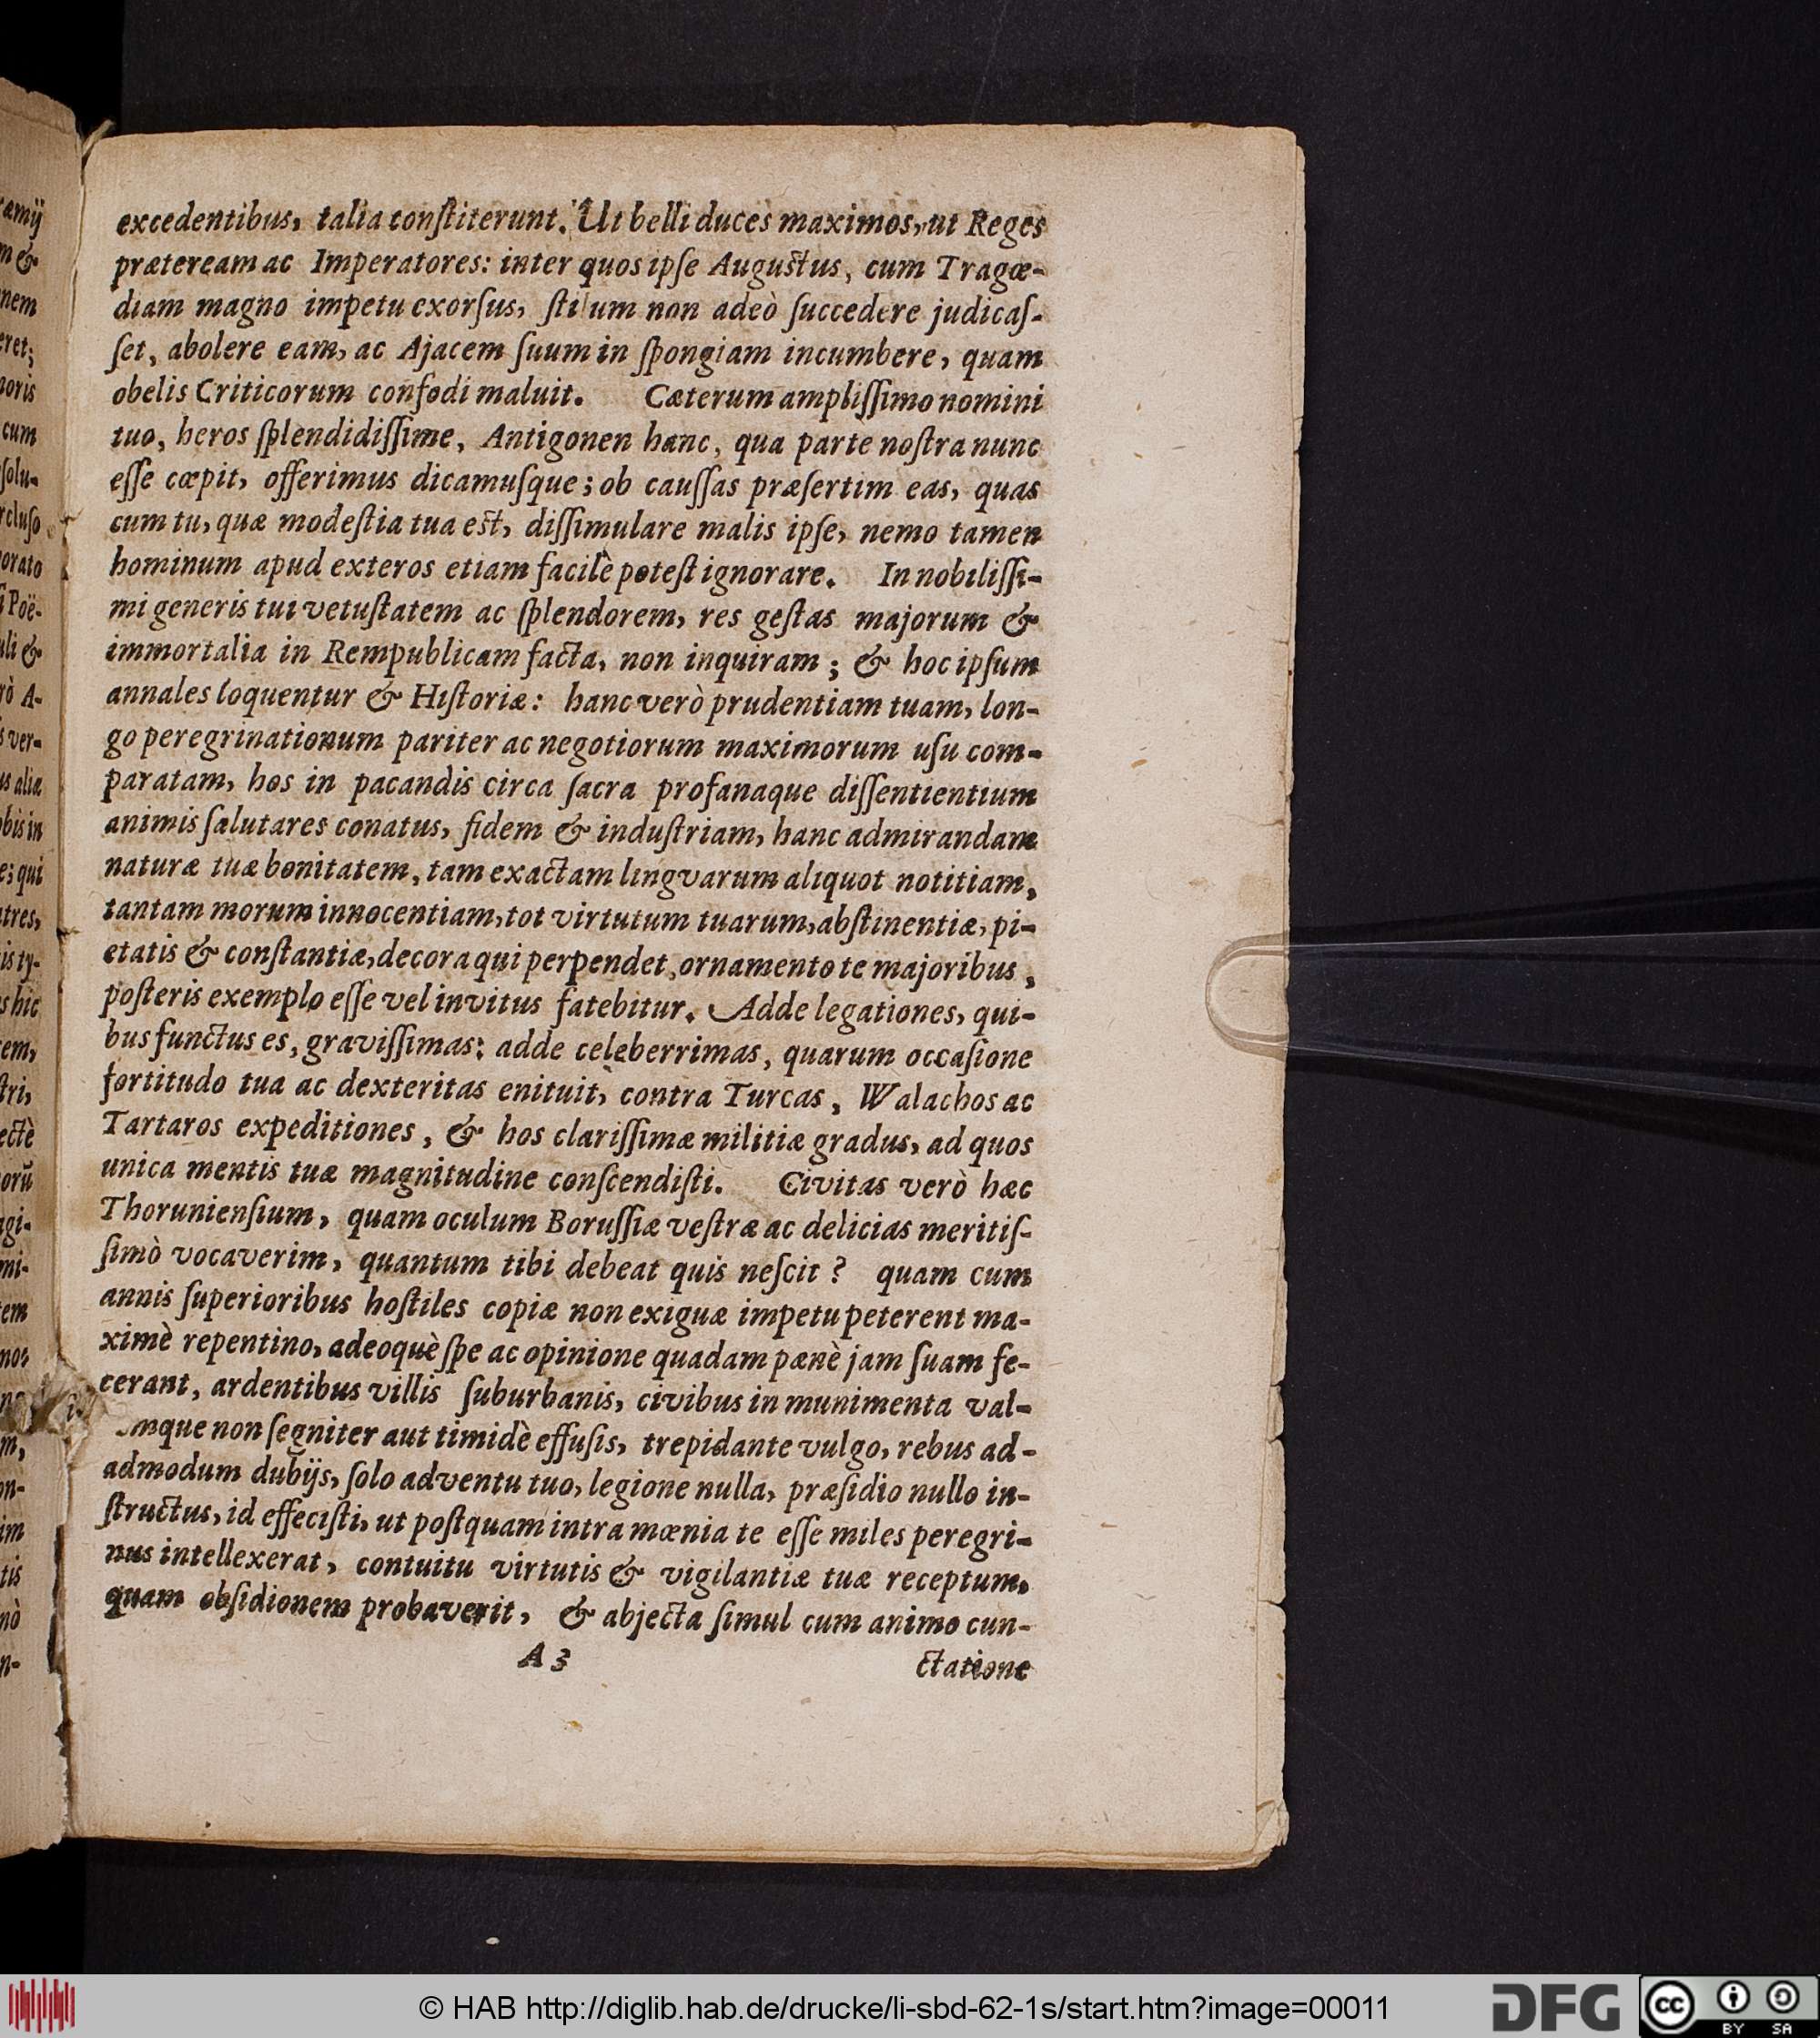 excedentibus, talia conſtiterunt. Ut belli duces maximos, ut Reges
prætereamac Imperatores: inter quos ipſe Auguſtus, cum Tragœ-
diam magno impetu exorſus, ſtilum non adeò ſuccedere judicaſ-
ſet, abolere eam, ac Ajacem ſuum in ſpongiam incumbere, quam
obelis Criticorum confodi maluit. Cæterum ampliſſimo nomini
tuo, heros ſplendidiſſime, Antigonen hanc, qua parte noſtra nunc
eſſe cœpit, offerimus dicamuſque; ob cauſſas præſertim eas, quas
cum tu, quæ modeſtia tua eſt, diſſimulare malis ipſe, nemo tamen
hominum apud exteros etiam facilè poteſt ignorare. In nobiliſſi-
mi generis tui vetuſtatem ac ſplendorem, res geſtas majorum &
immortalia in Rempublicam facta, non inquiram; & hoc ipſum
annales loquentur & Hiſtoriæ: hanc verò prudentiam tuam, lon-
go peregrinationum pariter ac negotiorum maximorum uſu com-
paratam, hos in pacandis circa ſacra profanaque diſſentientium
animis ſalutares conatus, fidem & induſtriam, hanc admirandam
naturæ tuæ bonitatem, tam exactam lingvarum aliquot notitiam,
tantam morum innocentiam, tot virtutum tuarum, abſtinentiæ, pi-
etatis & conſtantiæ, decora qui perpendet, ornamento te majoribus,
poſteris exemplo eſſe vel invitus fatebitur. Adde legationes, qui-
bus functus es, graviſſimas: adde celeberrimas, quarum occaſione
fortitudo tua ac dexteritas enituit, contra Turcas, Walachos ac
Tartaros expeditiones, & hos clariſſimæ militiæ gradus, ad quos
unica mentis tuæ magnitudine conſcendiſti. Civitas verò hæc
Thorunienſium, quam oculum Boruſſiæ veſtræ ac delicias meritiſ-
ſimò vocaverim, quantum tibi debeat quis neſcit? quam cum
annis ſuperioribus hoſtiles copiæ non exiguæ impetu peterent ma-
ximè repentino, adeoquè ſpe ac opinione quadam pænè jam ſuam fe-
cerant, ardentibus villis ſuburbanis, civibus in munimenta val-
mque non ſegniter aut timidè effuſis, trepidante vulgo, rebus ad-
admodum dubijs, ſolo adventu tuo, legione nulla, præſidio nullo in-
ſtructus, id effeciſti, ut poſtquam intra mœnia te eſſe miles peregri-
nus intellexerat, contuitu virtutis & vigilantiæ tuæ receptum,
quam obſidionem probaverit, & abjecta ſimul cum animo cun-
A 3 ctatione
© HAB http://diglib.hab.de/drucke/li-sbd-62-1s/start.htm?image=00011
DFG
cc BY SA